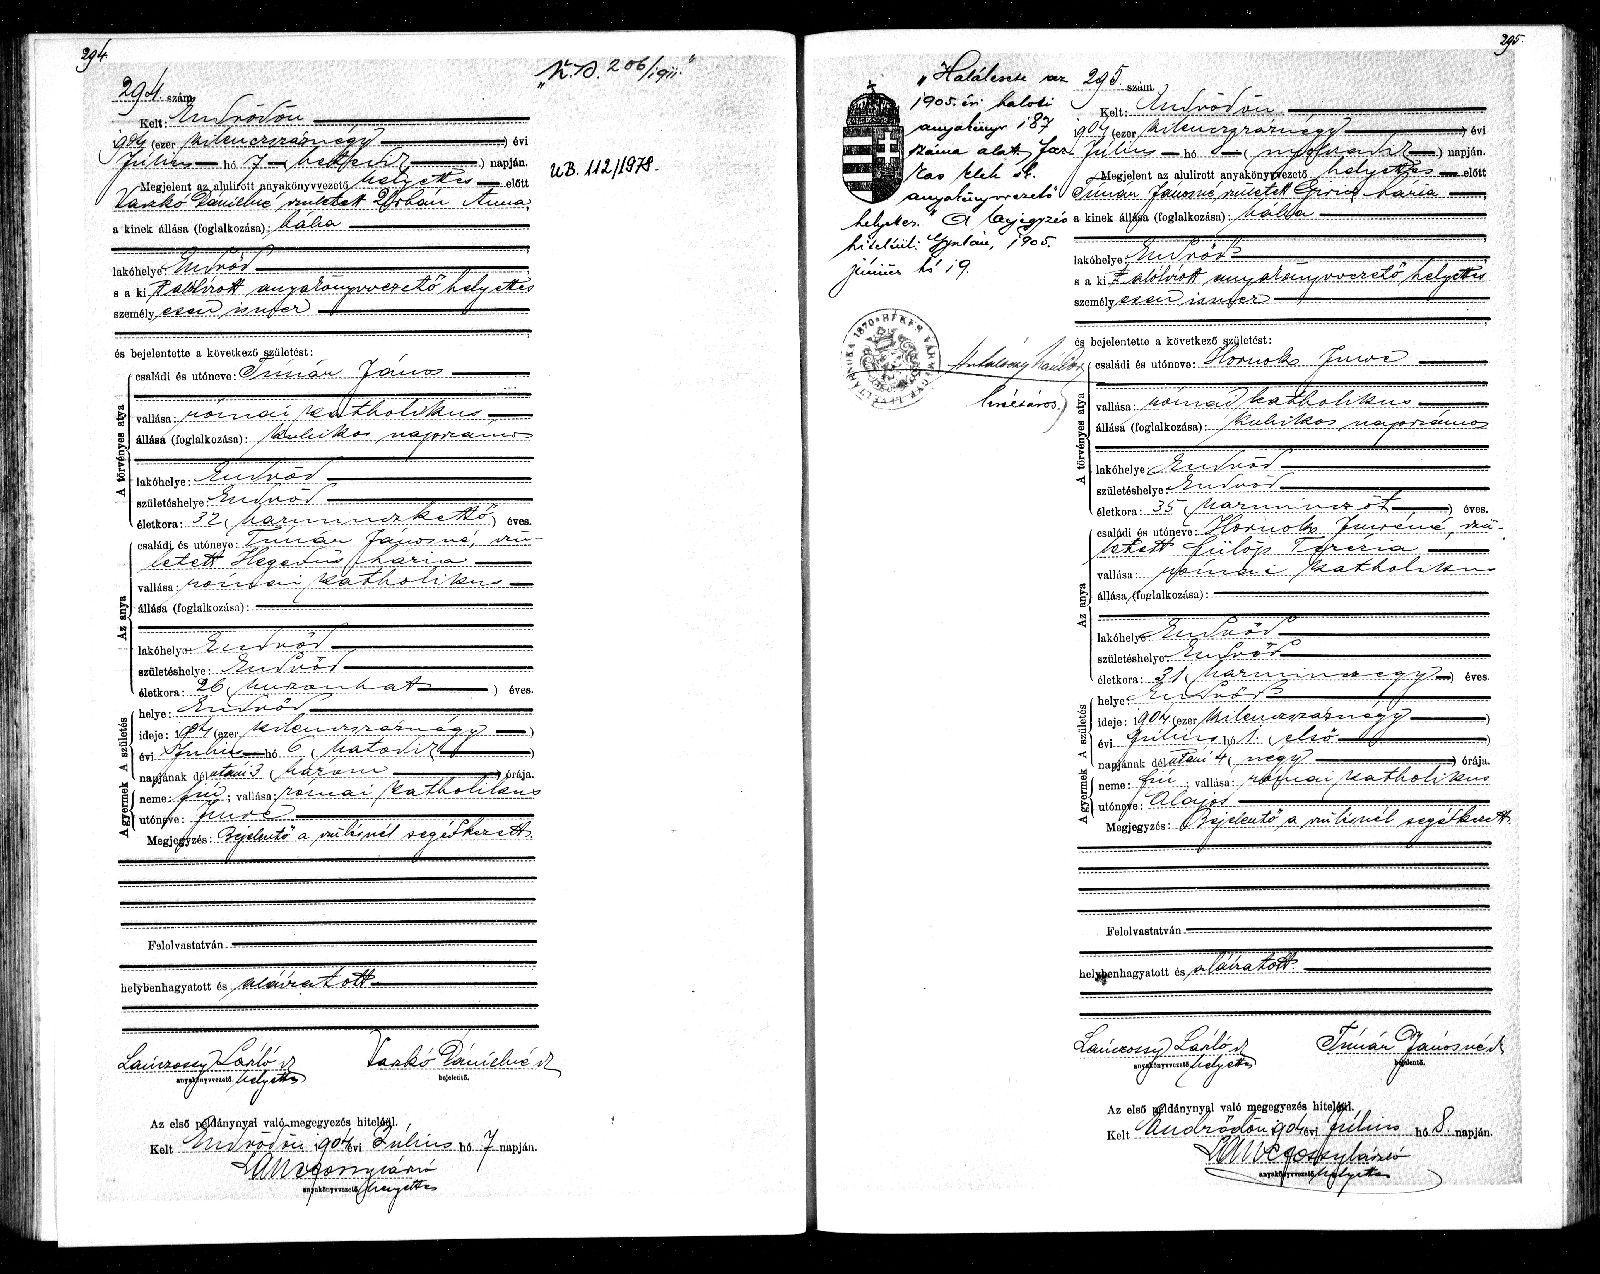 294
294 szám.
Kelt: Endrődön
1904 (ezer kilenczszáznégy) évi
Július hó 7 (hetedik) napján.
Megjelent az alulirott anyakönyvvezető helyettes előtt
Vaskó Dánielné született Urbán Anna
a kinek állása (foglalkozása): bába
lakóhelye: Endrőd
s a ki alólirott anyakönyvvezető helyettes
személyesen ismer
és bejelentette a következő születést:
A törvényes atya
családi és utóneve: Timár János
vallása: római katholikus
állása (foglalkozása): kubikos napszámos
lakóhelye: Endrőd
születéshelye: Endrőd
életkora: 32 (harminczkettő) éves.
Az anya
családi és utóneve: Timár Jánosné, szü-
letett Hegedűs Mária
vallása: római katholikus
állása (foglalkozása):
lakóhelye: Endrőd
születéshelye: Endrőd
életkora: 26 (huszonhat) éves.
A születés
helye: Endrőd
ideje: 1904 (ezer kilenczszáznégy)
évi Július hó 6 (hatodik)
napjának délután 3 (három) órája.
A gyermek
neme: fiú; vallása: római katholikus
utóneve: Imre
Megjegyzés: Bejelentő a szülésnél segédkezett.
Felolvastatván
helybenhagyatott és aláiratott
Lánczossy László Vaskó Dánielné
anyakönyvvezető helyettes bejelentő.
Az első példánynyal való megegyezés hiteléül.
Kelt Endrődön 1904 évi Július hó 7 napján.
Lánczossy László
anyakönyvvezető helyettes
206/1911.
UB. 112/1978.
295
"Halálesete az
1905. évi halotti
anyakönyv 187
száma alatt
anyakönyvvezető
helyettes." A bejegyzés
hiteléül: Gyulán, 1905.
június hó 19.
levéltáros.
295 szám.
Kelt: Endrődön
1904 (ezer kilenczszáznégy) évi
Július hó 8 (nyolczadik) napján.
Megjelent az alulirott anyakönyvvezető helyettes előtt
Timár Jánosné született Mária
a kinek állása (foglalkozása): bába
lakóhelye: Endrőd
s a ki alólirott anyakönyvvezető helyettes
személyesen ismer
és bejelentette a következő születést:
A törvényes atya
családi és utóneve: Hornok Imre
vallása: római katholikus
állása (foglalkozása): kubikos napszámos
lakóhelye: Endrőd
születéshelye: Endrőd
életkora: 35 (harminczöt) éves.
Az anya
családi és utóneve: Hornok Imréné, szü-
letett Fülöp Terézia
vallása: római katholikus
állása (foglalkozása):
lakóhelye: Endrőd
születéshelye: Endrőd
életkora: 31 (harminczegy) éves.
A születés
helye: Endrőd
ideje: 1904 (ezer kilenczszáznégy)
évi Július hó 1. (első)
napjának délutáni 4 (négy) órája.
A gyermek
neme: fiú; vallása: római katholikus
utóneve: Alajos
Megjegyzés: Bejelentő a szülésnél segédkezett.
Felolvastatván
helybenhagyatott és aláiratott.
Lánczossy László Timár Jánosné
anyakönyvvezető helyettes bejelentő.
Az első példánynyal való megegyezés hiteléül.
Kelt Endrődön 1904 évi Július hó 8. napján.
Lánczossy László
anyakönyvvezető helyettes